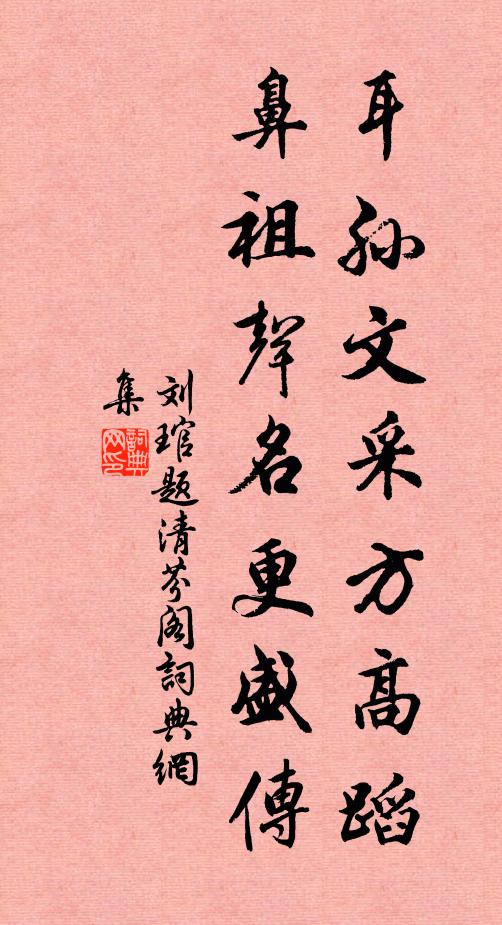 耳孙文采方高蹈
鼻祖聲名更盛傳
刘琯题清芬阁詞典網
集
詞典
网印